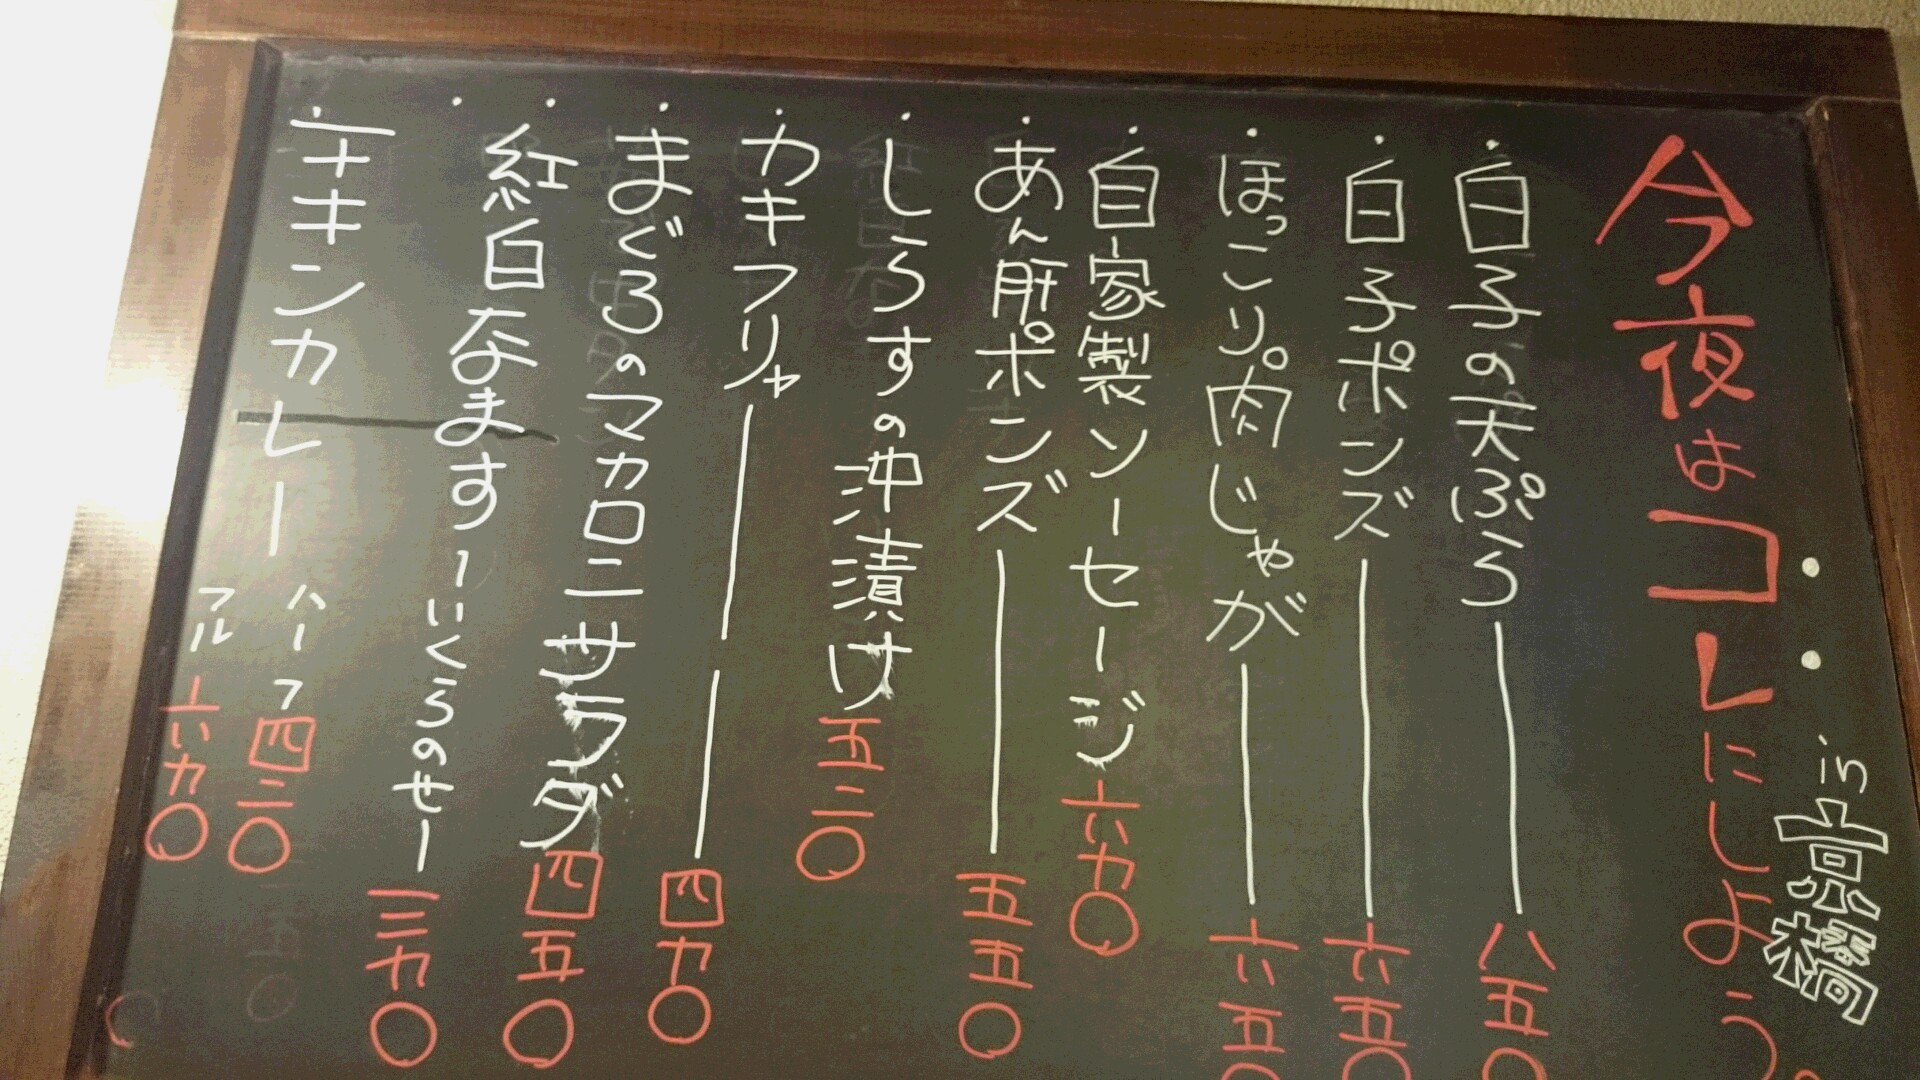 今夜はコレにしよう。
in 京橋
・白子の天ぷら 八五〇
・白子ポンズ 六五〇
・ほっこり肉じゃが 六五〇
・自家製ソーセージ 六九〇
・あん肝ポンズ 五五〇
・しらすの沖漬け 五二〇
・カキフリャー 四九〇
・まぐろのマカロニサラダ 四五〇
・紅白なます
・ーいくらのせー 三九〇
・チキンカレー ハーフ 四二〇
フル 六九〇